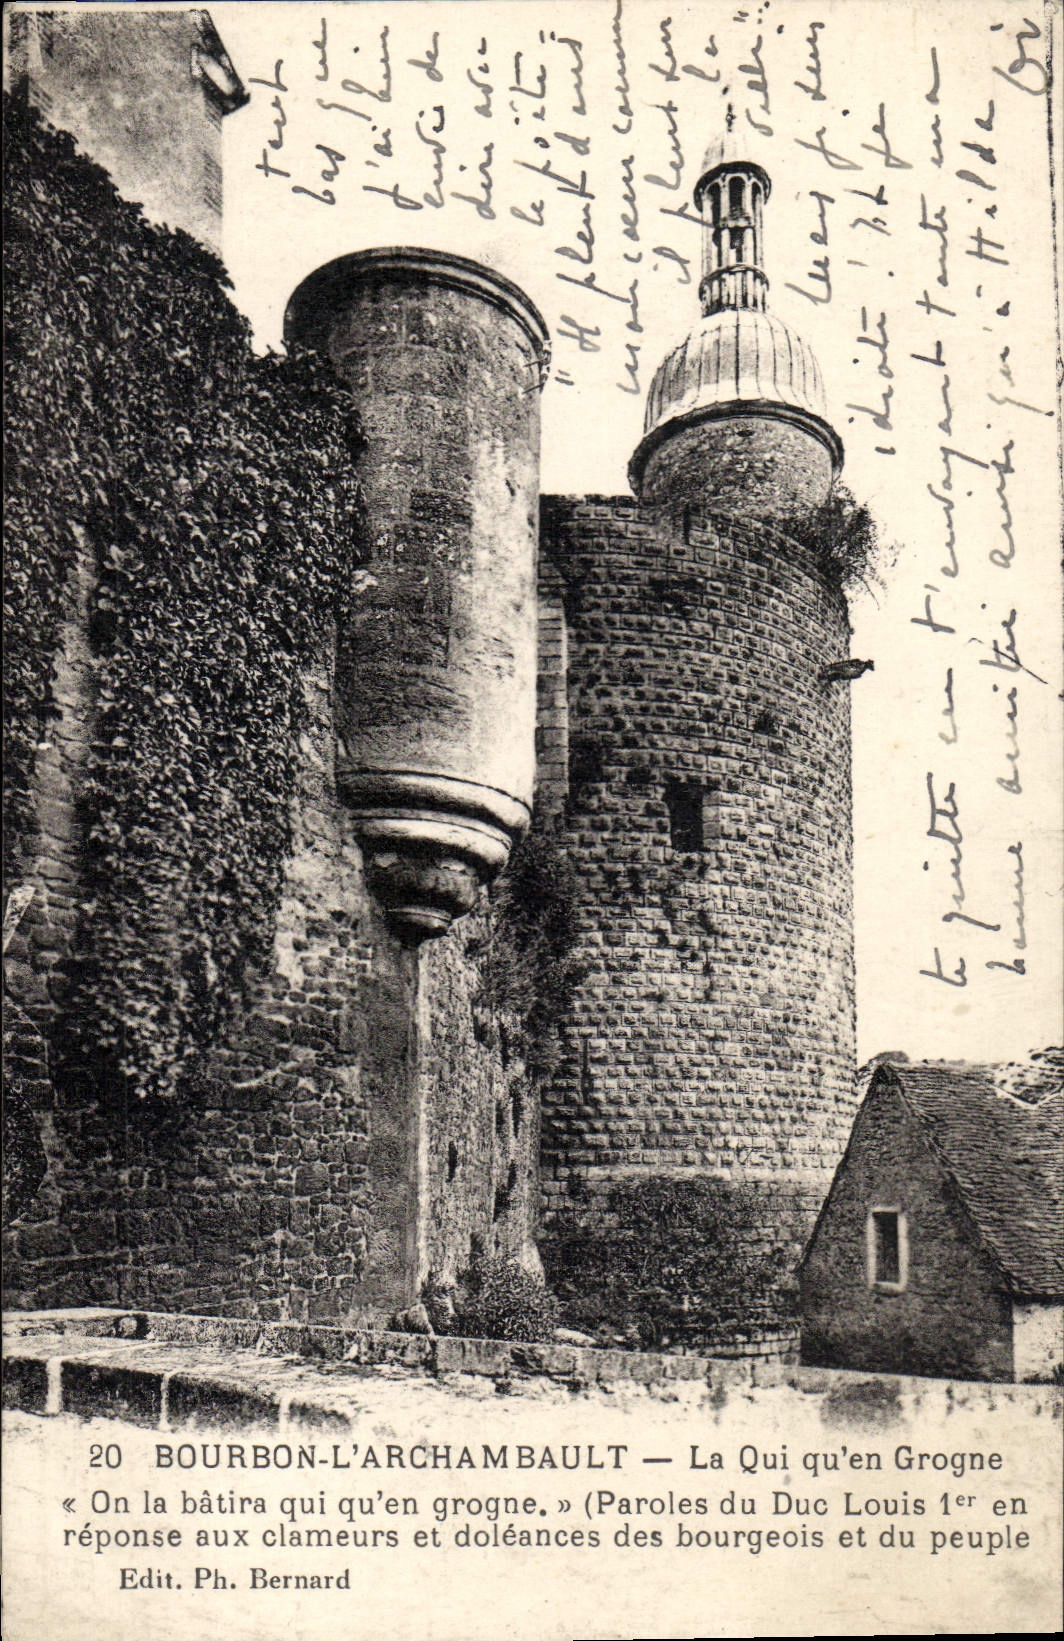 tant
bas que
j'ai bien
envie de
dire avec
le poëte =
"Il pleut dans
mon cœur comme
il pleut sur
la
ville"...
Mais je suis
idiote! Et je
te quitte en t'envoyant toute ma
bonne amitié ainsi qu'à Hilda
20 BOURBON-L'ARCHAMBAULT — La Qui qu'en Grogne
« On la bâtira qui qu'en grogne. » (Paroles du Duc Louis 1er en
réponse aux clameurs et doléances des bourgeois et du peuple
Edit. Ph. Bernard